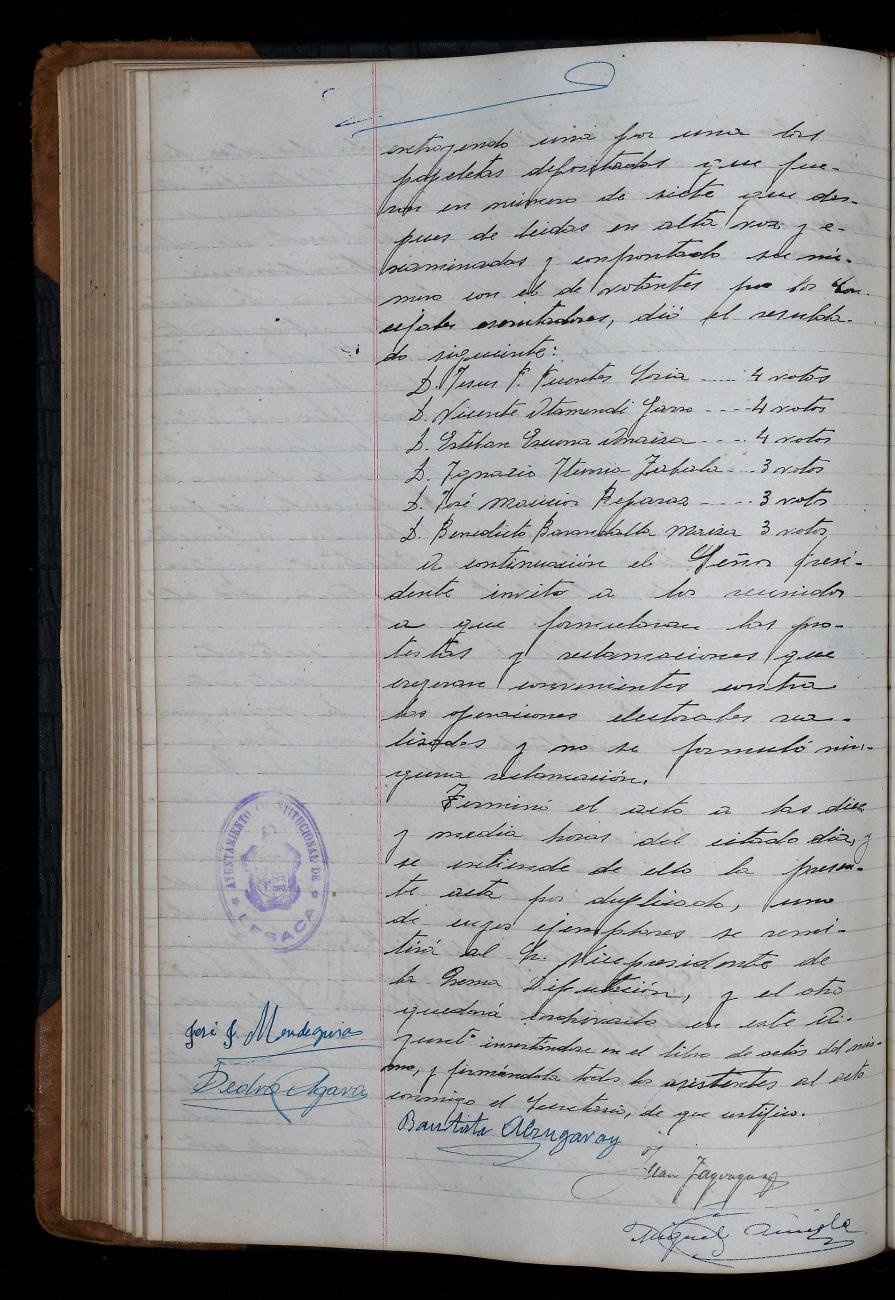 extrayendo una por una las
papeletas depositadas que fue-
ron en número de siete que des-
pues de leidas en alta voz y e-
xaminadas y confrontado su nú-
mero con el de votantes por los Con-
cejales escrutadores, dió el resulta-
do siguiente:
D. Jesus F. Fuentes Soria ..... 4 votos
D. Vicente Otamendi Garro - - - 4 votos
D. Esteban Ezcurra - - - 4 votos
D. Ignacio Zabala - - 3 votos
D. José Reparaz - - - - 3 votos
D. Benedicto Barandalla 3 votos
A continuación el Señor Presi-
dente invitó a los reunidos
a que formularan las pro-
testas y reclamaciones que
creyeran convenientes contra
las operaciones electorales rea-
lizadas y no se formuló nin-
guna reclamación.
Terminó el acto a las diez
y media horas del citado dia, y
se extiende de ello la presen-
te acta por duplicado, uno
de cuyos ejemplares se remi-
tirá al Sr. Vicepresidente de
la Excma Diputación, y el otro
quedará archivado en este A-
yuntº insertándose en el libro de actas del mis-
mo, y firmándola todos los asistentes al acto
conmigo el Secretario, de que certifico.
AYUNTAMIENTO CONSTITUCIONAL DE
LESACA
José J. Mendeguia
Pedro Agara
Bautista
Juan
Miguel